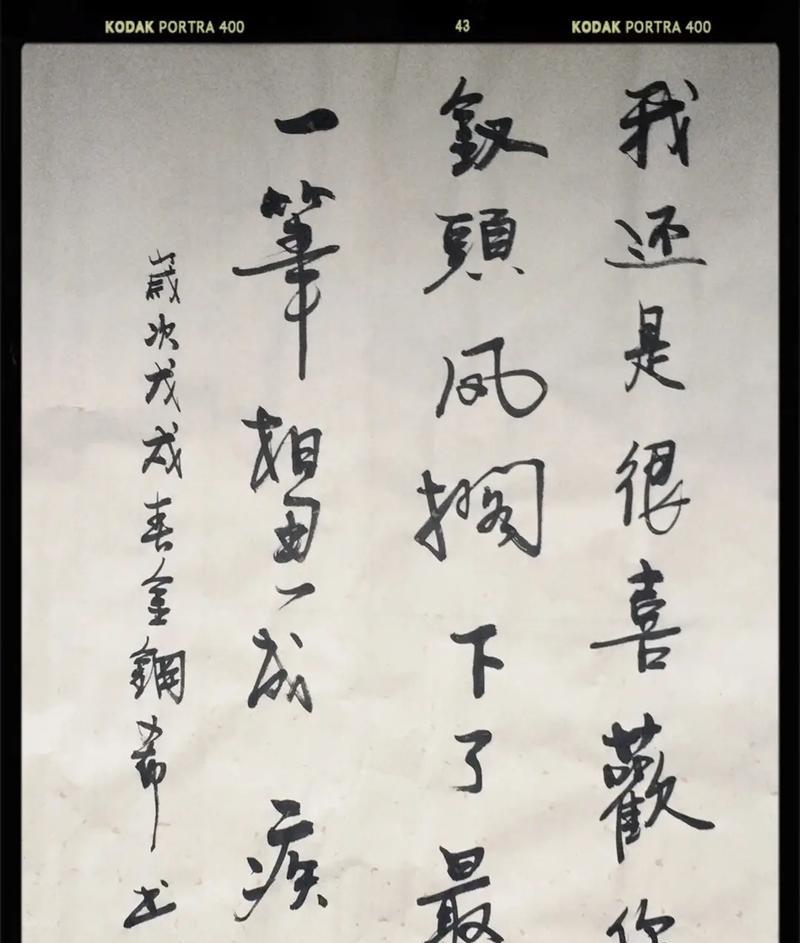 KODAK PORTRA 400 43 KODAK PORTRA 400
我还是很喜歡你
釵頭凤擱下了最
一筆相思成疾
歲次戊戌春金鋼希书